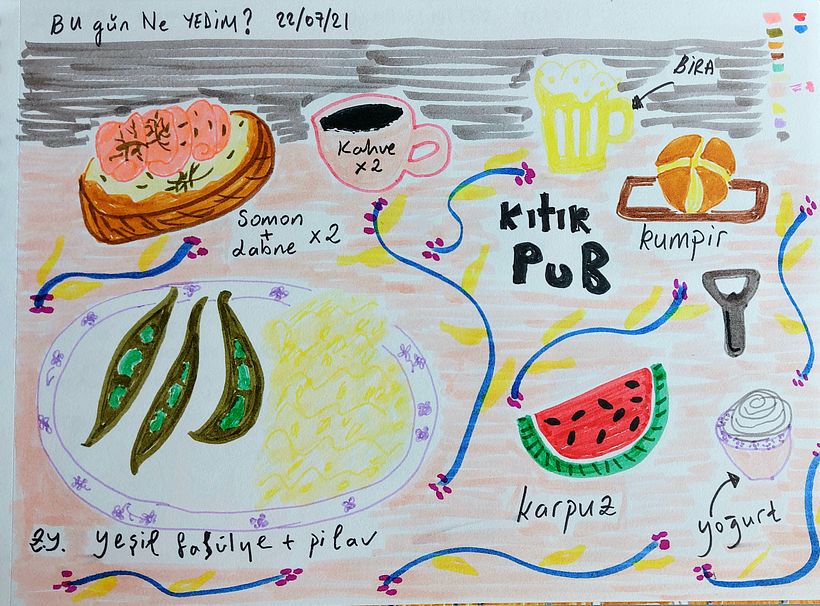 Bu gün Ne YEDİM? 22/07/21
BİRA
Kahve
x2
Somon
+
labne x2
KITIR
PUB
kumpir
karpuz
yoğurt
zy. yeşil fasülye + pilav